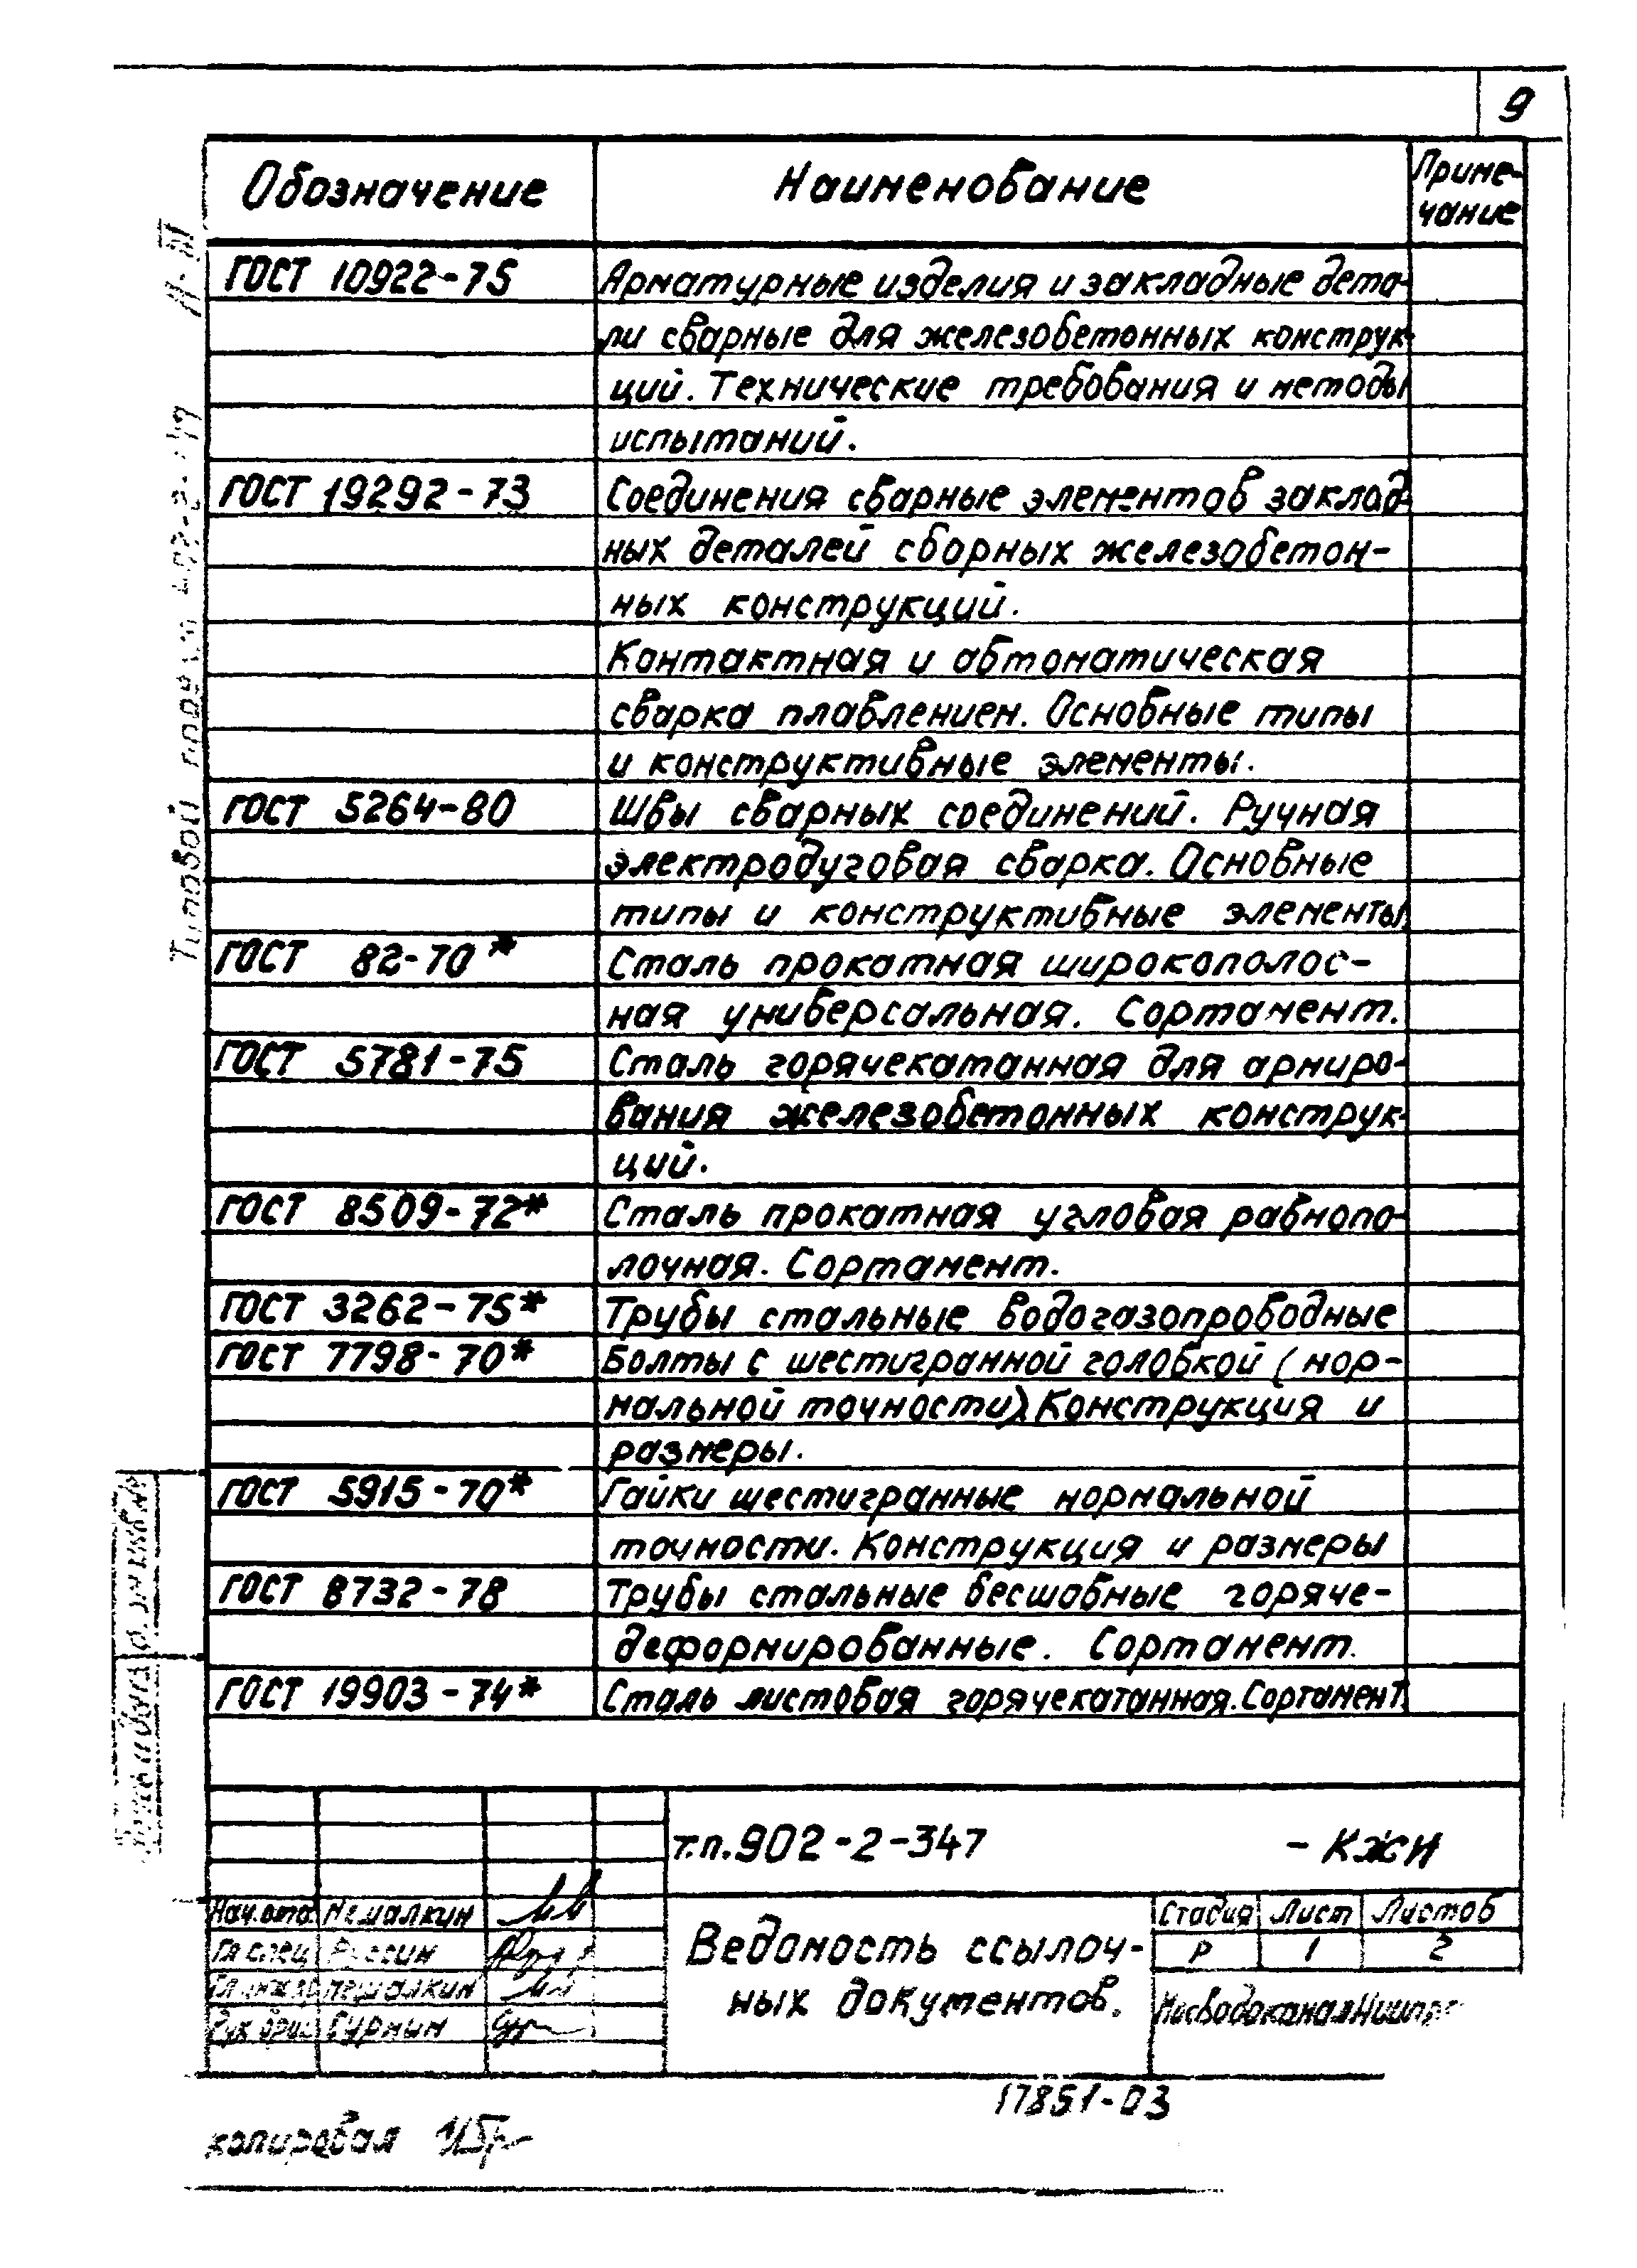 9
Обозначение Наименование Приме-
чание
ГОСТ 10922-75 Арматурные изделия и закладные дета-
ли сварные для железобетонных конструк-
ций. Технические требования и методы
испытаний.
ГОСТ 19292-73 Соединения сварные элементов заклад-
ных деталей сборных железобетон-
ных конструкций.
Контактная и автоматическая
сварка плавлением. Основные типы
и конструктивные элементы.
ГОСТ 5264-80 Швы сварных соединений. Ручная
электродуговая сварка. Основные
типы и конструктивные элементы.
ГОСТ 82-70* Сталь прокатная широкополос-
ная универсальная. Сортамент.
ГОСТ 5781-75 Сталь горячекатанная для армиро-
вания железобетонных конструк-
ций.
ГОСТ 8509-72* Сталь прокатная угловая равнопо-
лочная. Сортамент.
ГОСТ 3262-75* Трубы стальные водогазопроводные
ГОСТ 7798-70* Болты с шестигранной головкой (нор-
мальной точности). Конструкция и
размеры.
ГОСТ 5915-70* Гайки шестигранные нормальной
точности. Конструкция и размеры
ГОСТ 8732-78 Трубы стальные бесшовные горяче-
деформированные. Сортамент.
ГОСТ 19903-74* Сталь листовая горячекатанная. Сортамент.
Типовой
т.п. 902-2-347 - КЖИ
Нач.отд. Немалкин
Гл спец
Гурмин
Ведомость ссылоч-
ных документов.
Стадия Лист Листов
Р 1 2
17851-03
копировал